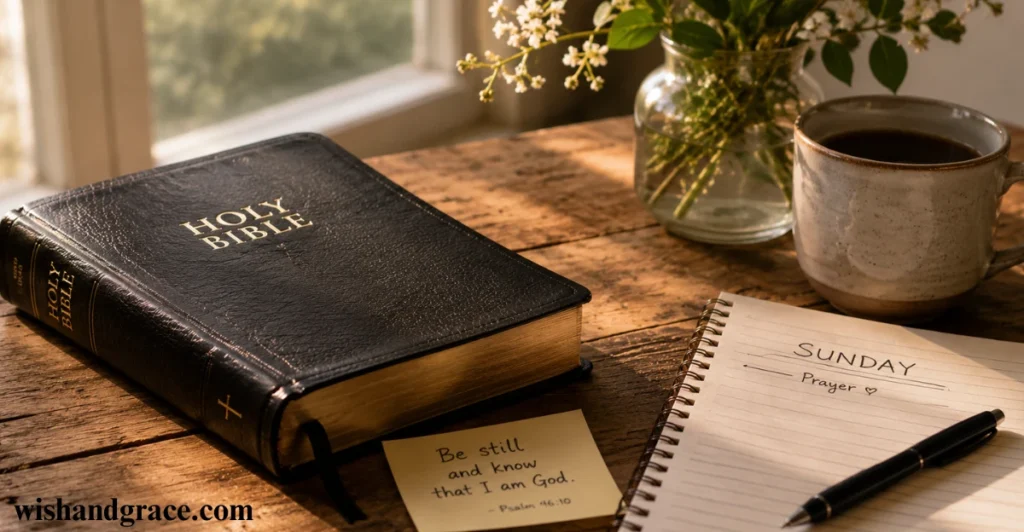 HOLY
BIBLE
HOLY
BIBLE
Be still
and know
that I am God.
- Psalm 46:10
SUNDAY
Prayer ♡
wishandgrace.com